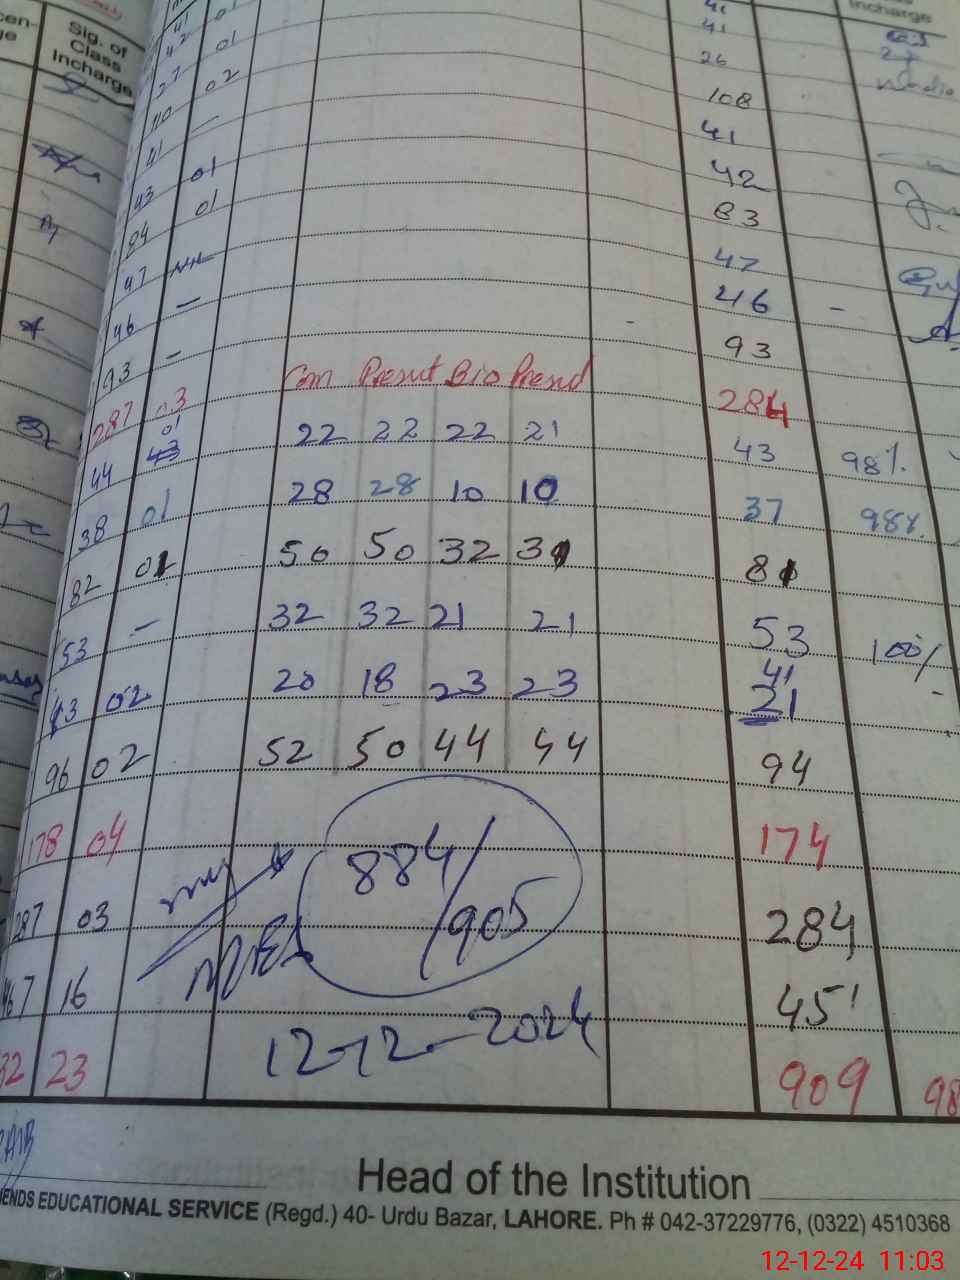 Sig. of
Class
Incharge
Incharge
41 01 41
42 01 41
27 02 26
110 108
41 — 41
43 01 42
84 01 83
47 47
46 — 46 -
93 — 93
Com Present Bio Present
287 03 284
01
44 43 22 22 22 21 43 98%
38 01 28 28 10 10 37 98%
82 01 50 50 32 31 81
53 — 32 32 21 21 53 100%
41
43 02 20 18 23 23 21
96 02 52 50 44 44 94
178 04 174
884/905
287 03 284
467 16 451
12-12-2024
32 23 909 98
Head of the Institution
ENDS EDUCATIONAL SERVICE (Regd.) 40- Urdu Bazar, LAHORE. Ph # 042-37229776, (0322) 4510368
12-12-24 11:03